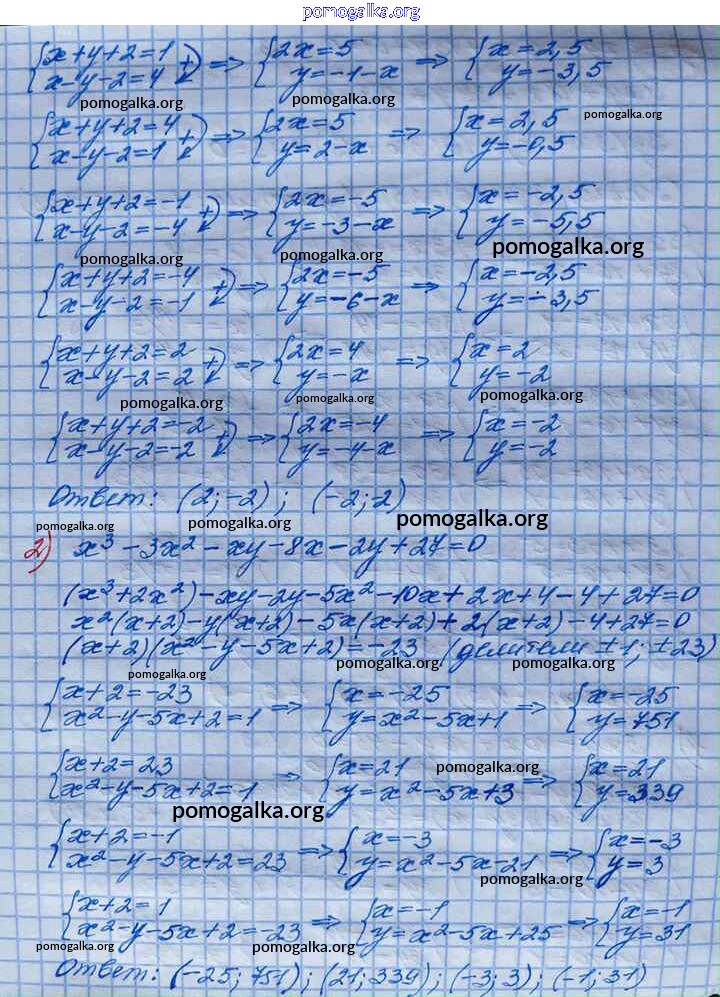 pomogalka.org
{x+y+2=1 x-y-2=4 +) => {2x=5 y=-1-x => {x=2,5 y=-3,5
pomogalka.org pomogalka.org pomogalka.org
{x+y+2=4 x-y-2=1 +) => {2x=5 y=2-x => {x=2,5 y=-0,5
{x+y+2=-1 x-y-2=-4 +) => {2x=-5 y=-3-x => {x=-2,5 y=-5,5
pomogalka.org pomogalka.org pomogalka.org
{x+y+2=-4 x-y-2=-1 +) => {2x=-5 y=-6-x => {x=-2,5 y=-3,5
{x+y+2=2 x-y-2=2 +) => {2x=4 y=-x => {x=2 y=-2
pomogalka.org pomogalka.org pomogalka.org
{x+y+2=-2 x-y-2=-2 +) => {2x=-4 y=-4-x => {x=-2 y=-2
Ответ: (2;-2); (-2;-2)
pomogalka.org pomogalka.org pomogalka.org
2) x³-3x²-xy-8x-2y+27=0
(x³+2x²)-xy-2y-5x²-10x+2x+4-4+27=0
x²(x+2)-y(x+2)-5x(x+2)+2(x+2)-4+27=0
(x+2)(x²-y-5x+2)=-23 (делители ±1; ±23)
pomogalka.org pomogalka.org pomogalka.org
{x+2=-23 x²-y-5x+2=1 => {x=-25 y=x²-5x+1 => {x=-25 y=751
{x+2=23 x²-y-5x+2=-1 => {x=21 y=x²-5x+3 => {x=21 y=339
pomogalka.org pomogalka.org
{x+2=-1 x²-y-5x+2=23 => {x=-3 y=x²-5x-21 => {x=-3 y=3
pomogalka.org
{x+2=1 x²-y-5x+2=-23 => {x=-1 y=x²-5x+25 => {x=-1 y=31
pomogalka.org pomogalka.org pomogalka.org
Ответ: (-25; 751); (21; 339); (-3; 3); (-1; 31)